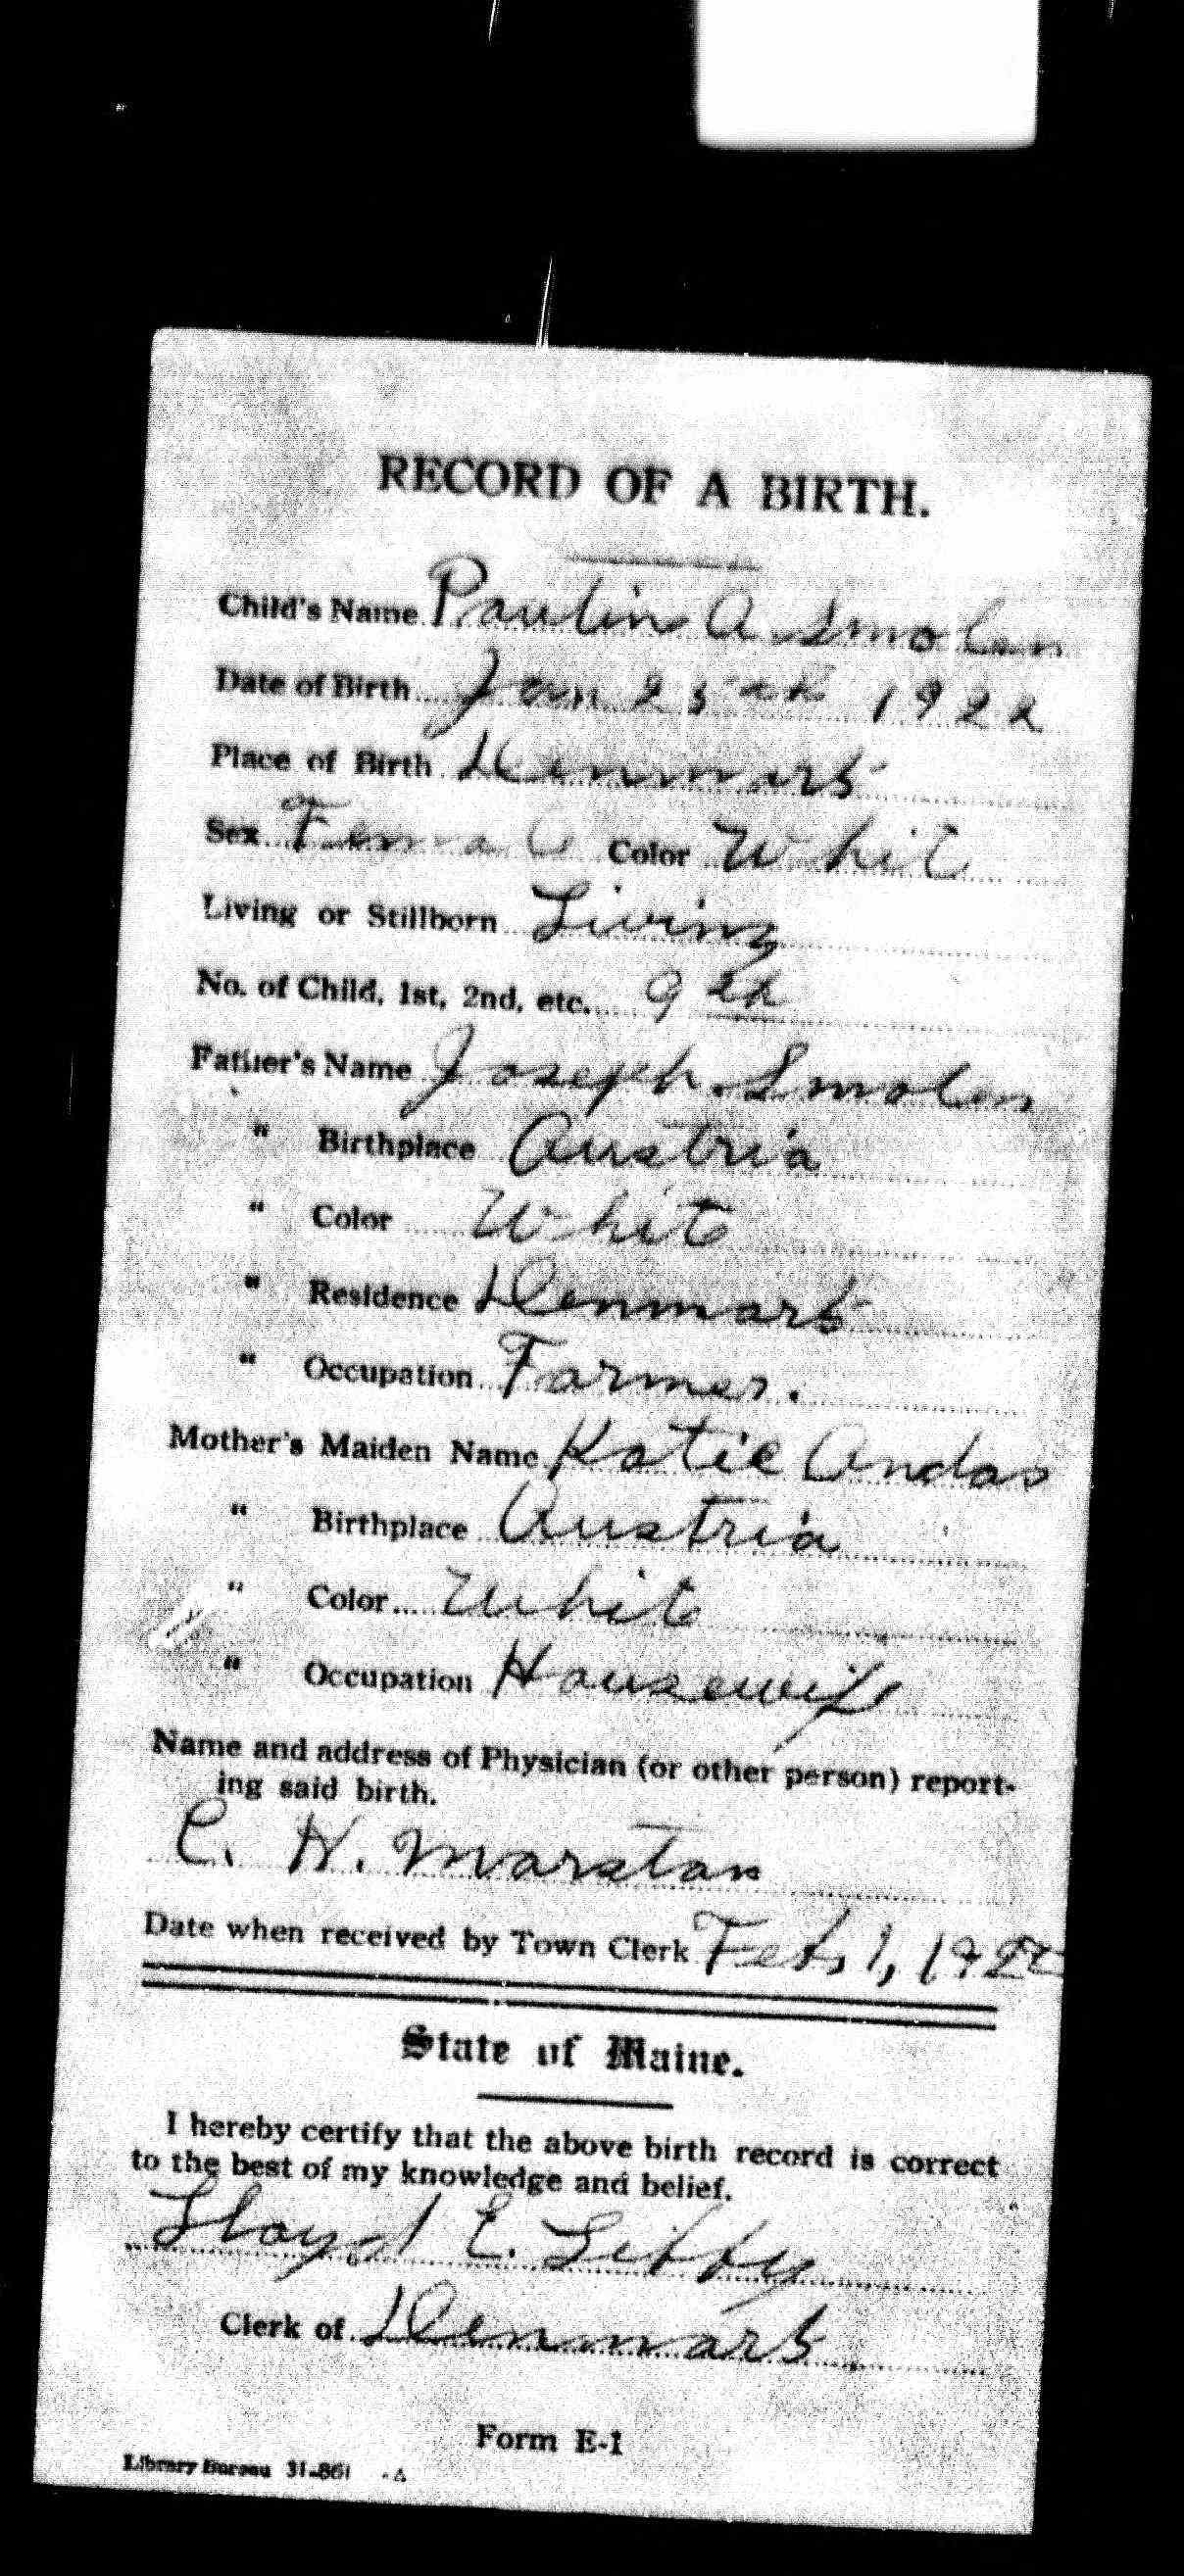 RECORD OF A BIRTH.
Child's Name Paulin A. Smolen
Date of Birth Jan 25th 1922
Place of Birth Denmark
Sex Female Color White
Living or Stillborn Living
No. of Child, 1st, 2nd, etc. 9th
Father's Name Joseph Smolen
" Birthplace Austria
" Color White
" Residence Denmark
" Occupation Farmer.
Mother's Maiden Name Katie Andas
" Birthplace Austria
" Color White
" Occupation Housewife
Name and address of Physician (or other person) report-
ing said birth.
C. H. Marston
Date when received by Town Clerk Feb, 1, 1922
State of Maine.
I hereby certify that the above birth record is correct
to the best of my knowledge and belief.
Lloyd E.
Clerk of Denmark
Form E-1
Library Bureau 31-861